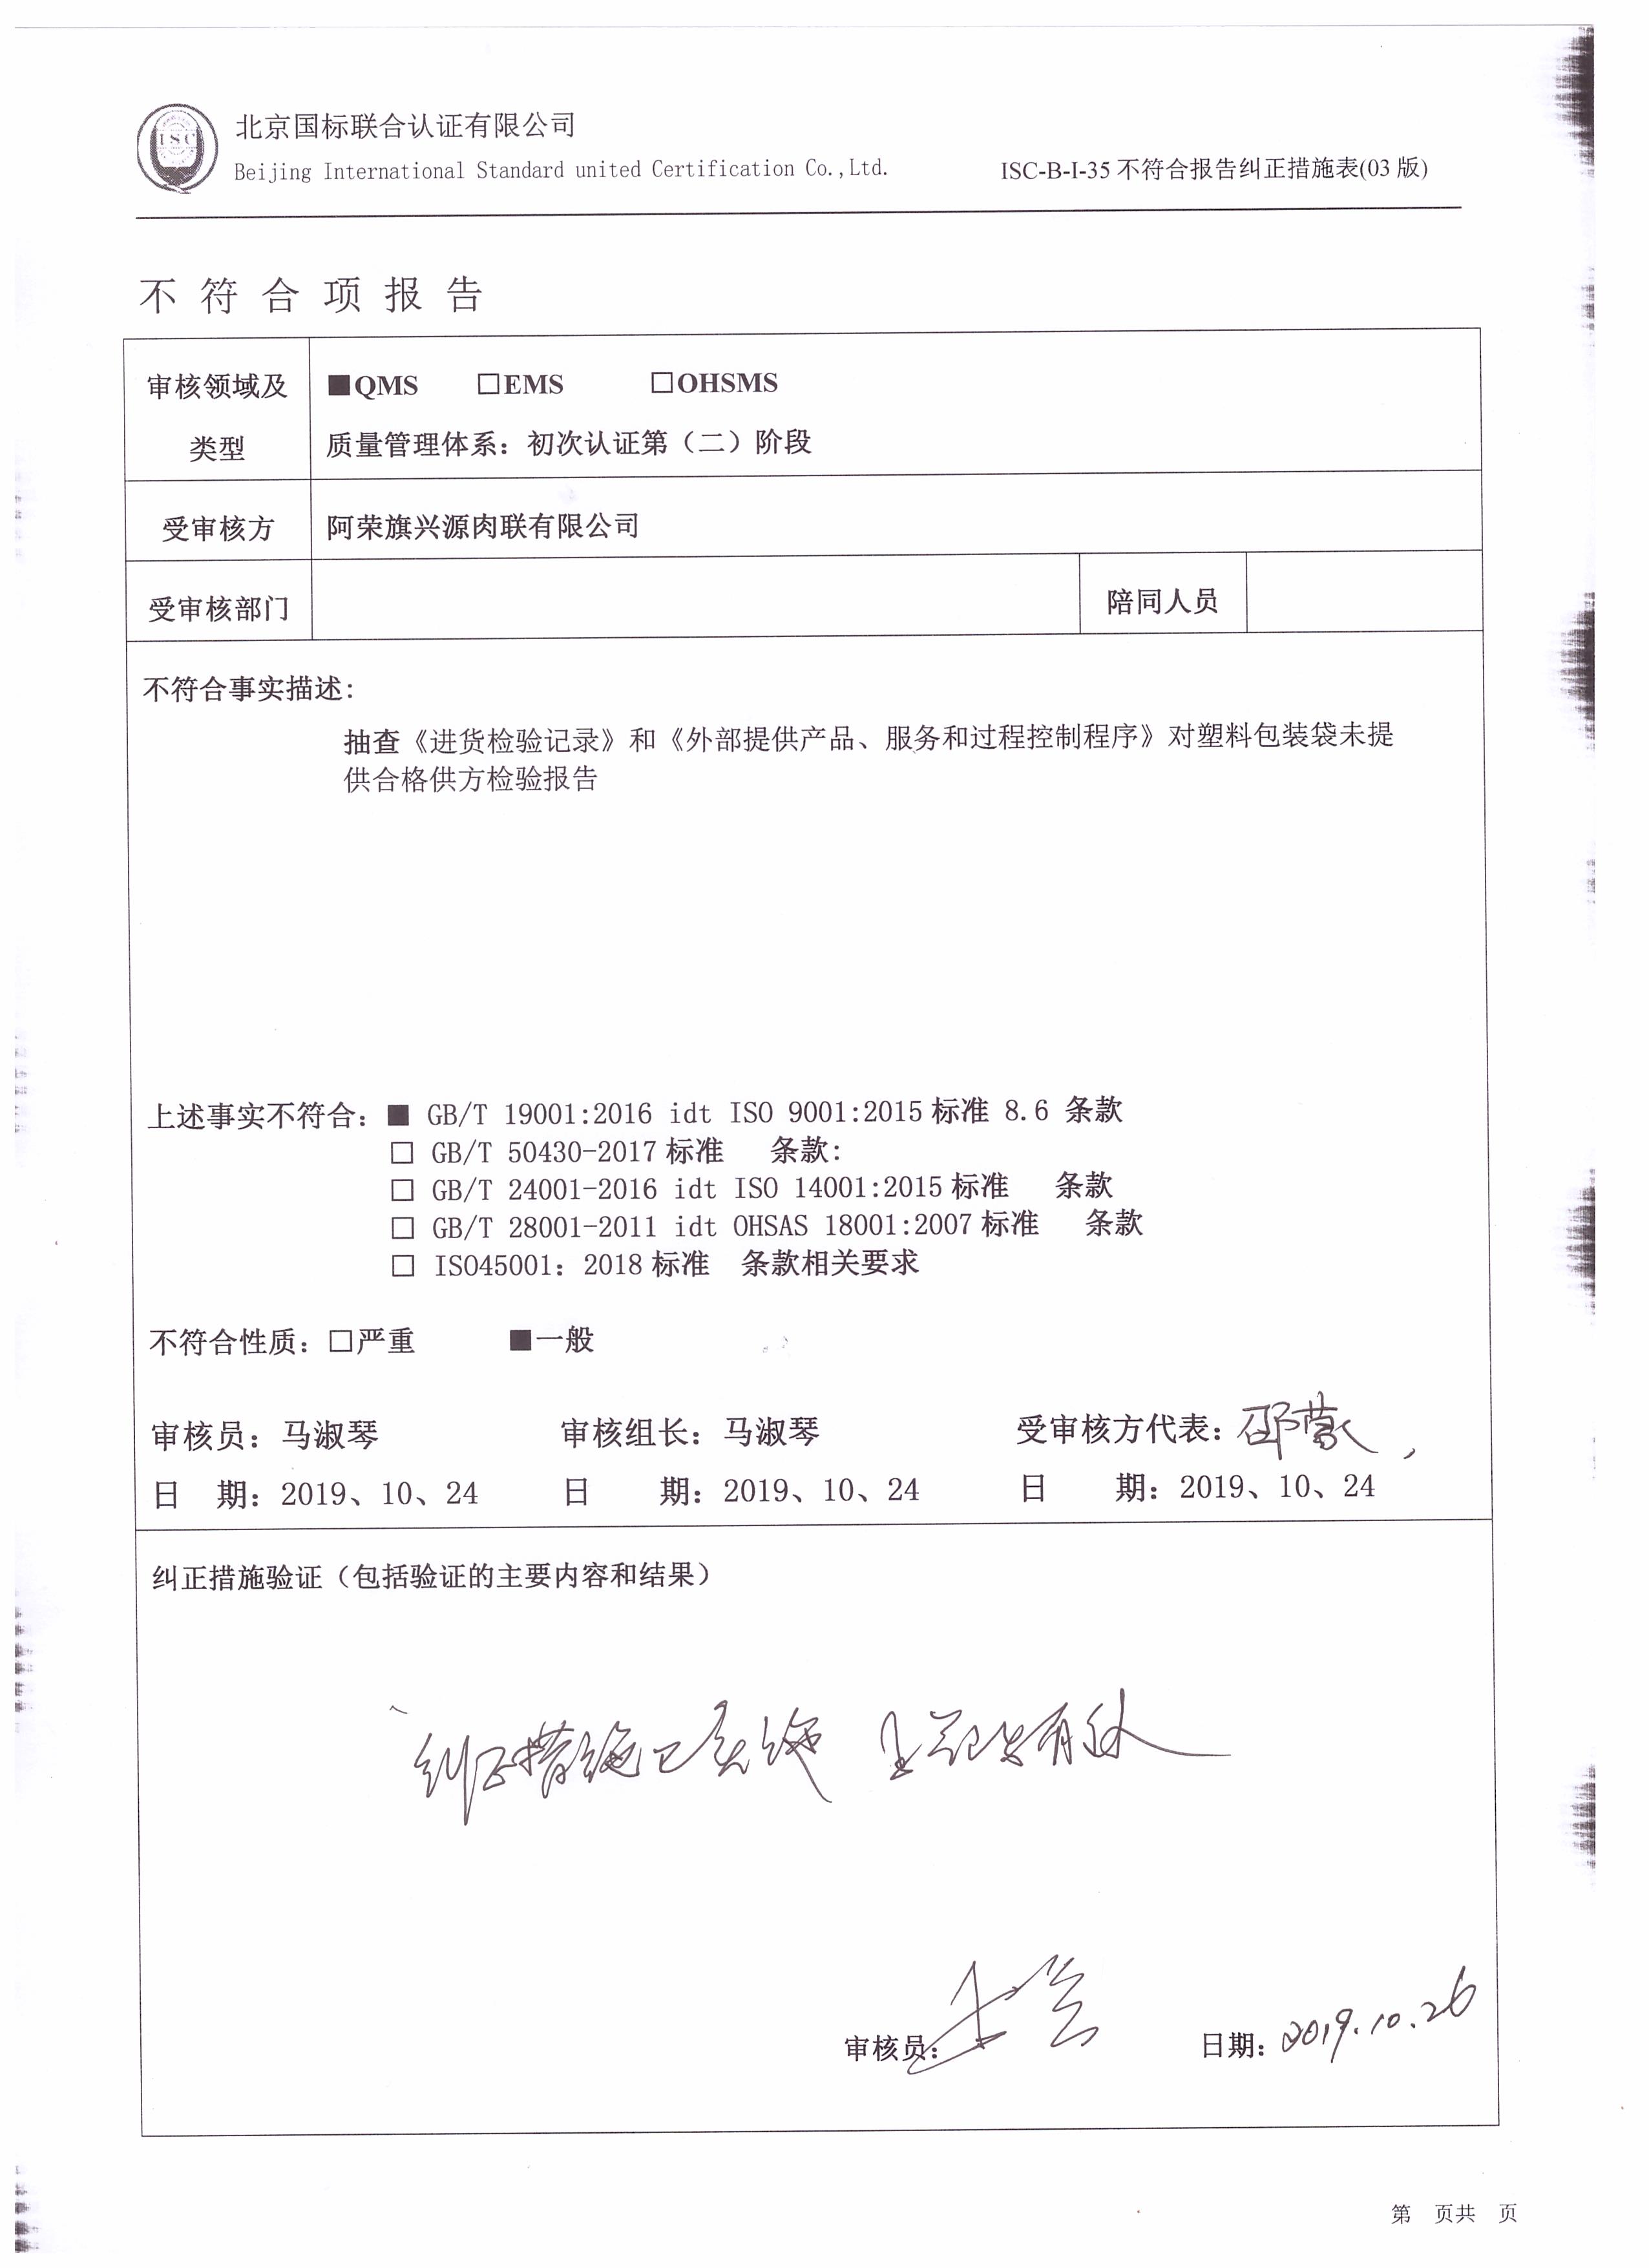 ISC
北京国标联合认证有限公司
Beijing International Standard united Certification Co.,Ltd.
ISC-B-I-35 不符合报告纠正措施表(03 版)
不 符 合 项 报 告
审核领域及
类型
■QMS □EMS □OHSMS
质量管理体系：初次认证第（二）阶段
受审核方
阿荣旗兴源肉联有限公司
受审核部门
陪同人员
不符合事实描述：
抽查《进货检验记录》和《外部提供产品、服务和过程控制程序》对塑料包装袋未提
供合格供方检验报告
上述事实不符合：■ GB/T 19001:2016 idt ISO 9001:2015 标准 8.6 条款
□ GB/T 50430-2017 标准 条款：
□ GB/T 24001-2016 idt ISO 14001:2015 标准 条款
□ GB/T 28001-2011 idt OHSAS 18001:2007 标准 条款
□ ISO45001：2018 标准 条款相关要求
不符合性质：□严重 ■一般
审核员：马淑琴 审核组长：马淑琴 受审核方代表：
日 期：2019、10、24 日 期：2019、10、24 日 期：2019、10、24
纠正措施验证（包括验证的主要内容和结果）
纠正措施已实施 有效
审核员： 日期：2019.10.26
第 页共 页